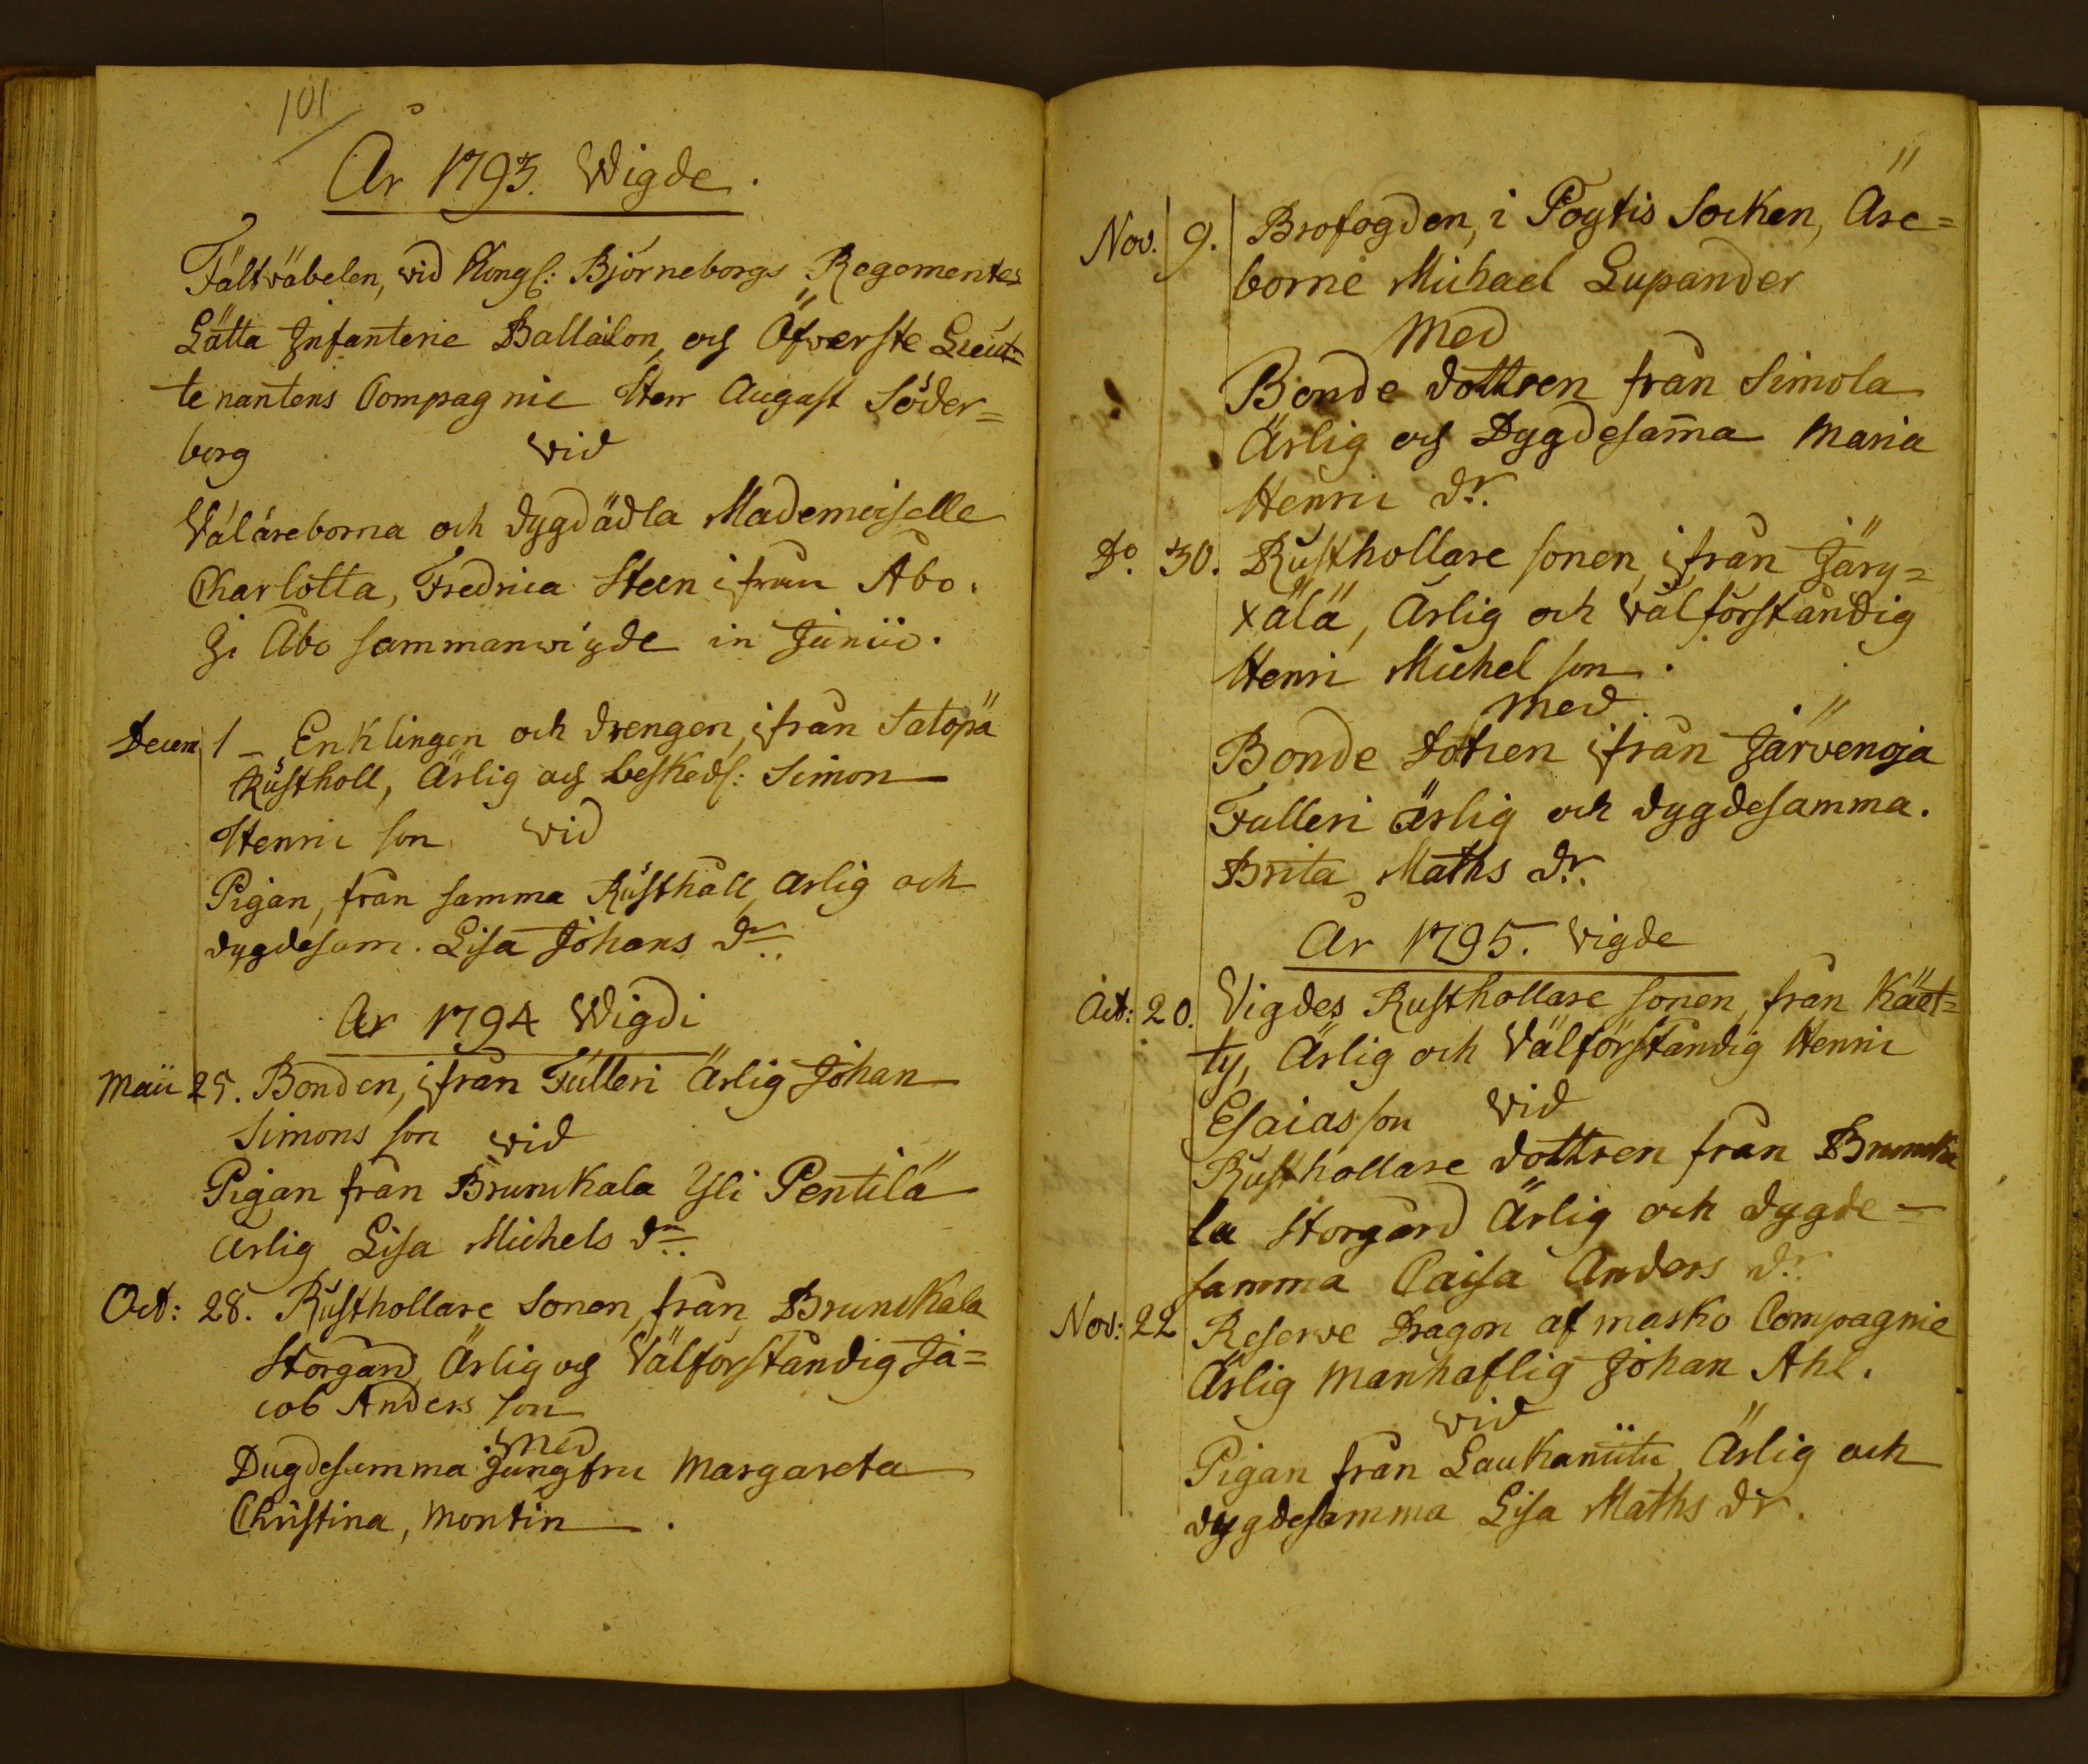 101
År 1793. Wigde.
Fältväbelen, vid Kongl: Björneborgs Regementes
Lätta Infanterie Battalon, och Öfverste Lieut=
tenantens Compagnie Herr August Söder=
borg vid
Väläreborna och dygdädla Mademoiselle
Charlotta, Fredrica Steen ifrån Åbo.
Ji Åbo sammanwigde in Junii.
Decem 1 – Enklingen och drengen, ifrån Satopä
Rustholl, Ärlig och beskedl: Simon
Henric son vid
Pigan, från samma Rusthåll, ärlig och
dygdesam. Lisa Johans dr.
År 1794 Wigdi
Maii 25. Bonden, ifrån Fulleri Ärlig Johan
Simons son vid
Pigan från Brunckala Yli Pentilä
ärlig Lisa Michels dr.
Oct: 28. Rusthollare sonen, från Brunckala
Storgård, Ärlig och Välförståndig Ja=
cob Anders son
med
Dugdesamma Jungfru Margareta
Christina, Montin.
Nov. 9. Brofogden, i Pöytis Socken, Äre=
borne Michael Lupander
med
Bonde dottren från Simola
Ärlig och Dygdesam̄a Maria
Henric dr.
Do. 30. Rusthollare sonen, ifrån Järy=
xälä, Ärlig och välförståndig
Henri Michel son.
med
Bonde dotren ifrån Järvenoja
Fulleri ärlig och dygdesamma.
Brita Maths dr.
År 1795. vigde
Oct: 20. Vigdes Rusthollare sonen, från Käet=
ty, Ärlig och Välförståndig Henric
Esaias son vid
Rusthollare dottren från Bruncka
la Storgård Ärlig och dygde=
samma Caisa Anders dr.
Nov: 22 Reserve Dragon af masko Compagnie
Ärlig Manhaftig Johan Ahl.
vid
Pigan från Laukaniitu, Ärlig och
dygdesamma Lisa Maths dr.